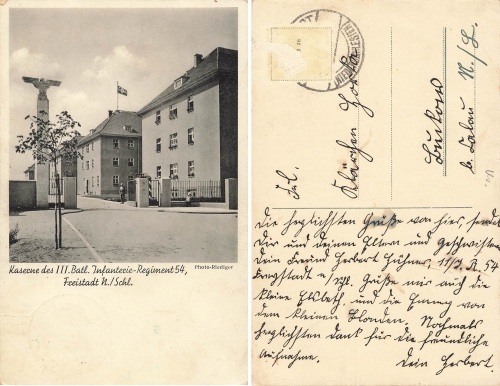 Kaserne des III. Batl. Infanterie-Regiment 54,
Photo-Rüdiger
Freistadt N./Schl.
Frl.
Klärchen
Buckow
b. Calau N./L.
Die herzlichsten Grüße von hier sendet
Dir und deinen Eltern und Geschwister
Dein Freund Herbert Hühner. 11/J. R. 54
Freystadt N/Schl. Grüße mir auch die
kleine Elsbeth. und die Emmy von
dem kleinen Blonden. Nochmals
herzlichsten Dank für die freundliche
Aufnahme.
Dein Herbert.